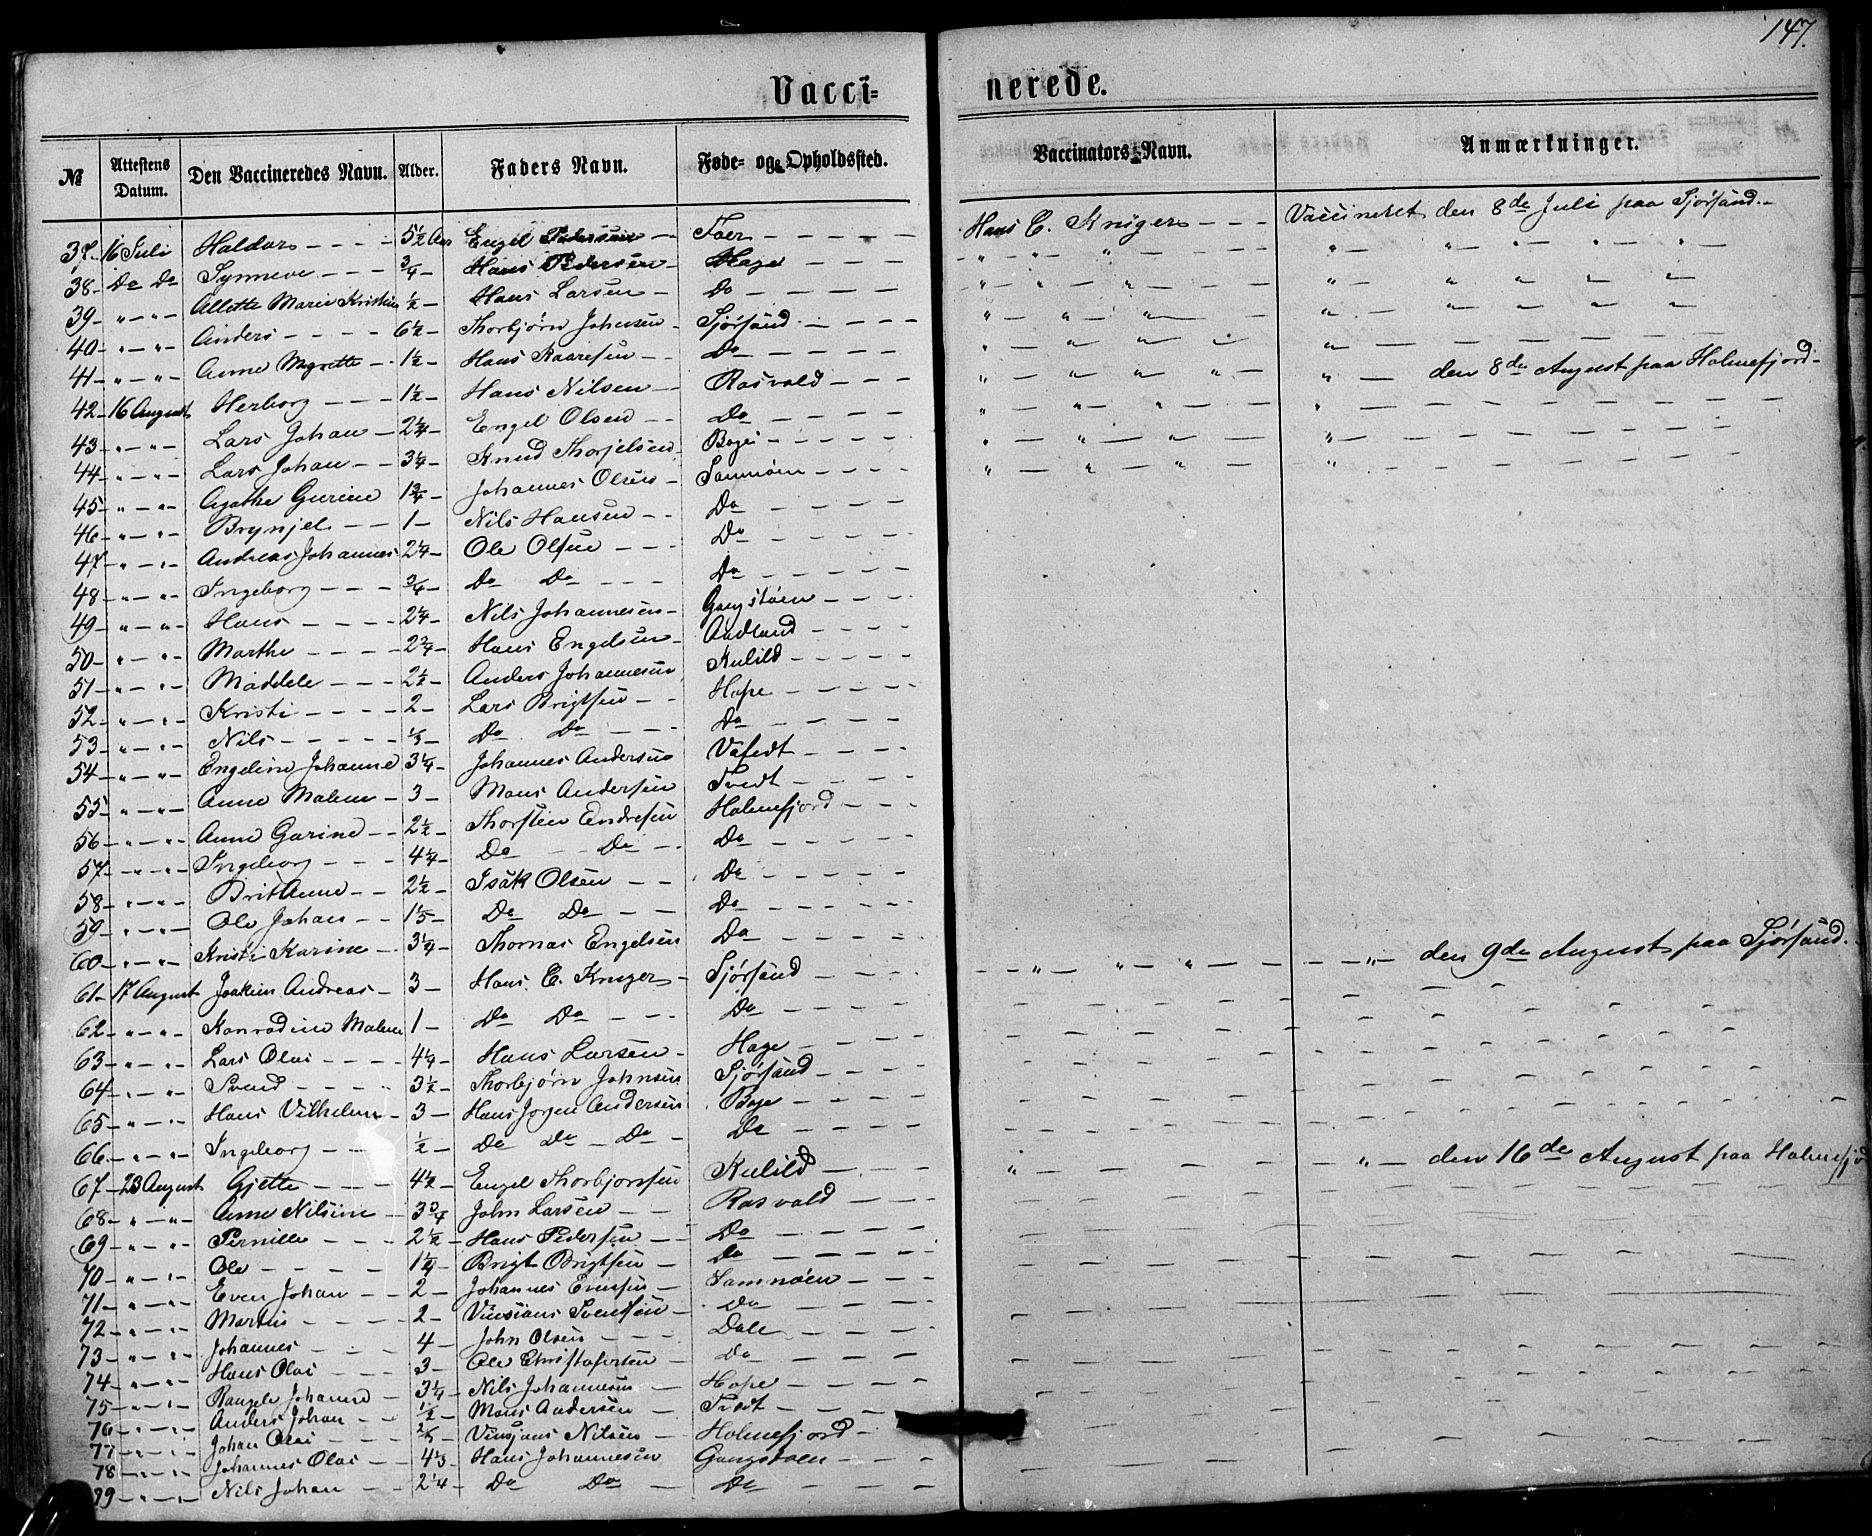 147.
Vacci= nerede.
№ Attestens Datum. Den Vaccineredes Navn. Alder. Faders Navn. Føde- og Opholdssted. Vaccinators Navn. Anmærkninger.
37 – 16 Juli Haldor – – – – 5½ Aar Engel Pedersen – Toer – – – – Hans C. Krüger – – – Vaccineret den 8de Juli paa Sjørsand. –
38 – Do Do Synneve – – – ¾ – Hans Pedersen – Hage – – – –
39 – " – " – Alette Marie Kristine ½ – Hans Larsen – Do – – – –
40 – " – " – Anders – – – – 6½ – Thorbjørn Johnsen – Sjørsand – – – –
41 – " – " – Anne Magrette – 1½ – Hans Kaaresen – – Do – – – –
42 – 16 August Herborg – – – 1½ – Hans Nilsen – – Rosvold – – – " – den 8de August paa Holmefjord –
43 – " – " – Lars Johan – 2¼ – Engel Olsen – – Do – – – –
44 – " – " – Lars Johan – – 3¼ – Knud Thorjelsen Boge – – – –
45 – " – " – Agathe Gurine 1¾ – Johannes Olsen – Samnøen – – – –
46 – " – " – Brynjel – – 1 – Nils Hansen – – Do – – – –
47 – " – " – Andreas Johannes 2¼ – Ole Olsen – – – Do – – – –
48 – " – " – Ingeborg – – – ¾ – Do Do – – – Do – – – –
49 – " – " – Hans – – – – 2¼ – Nils Johannesen – Gangstøen – – –
50 – " – " – Marthe – – – – 2¾ – Hans Engelsen – Aadland – – – –
51 – " – " – Maddele – – – 2½ – Anders Johannesen Kulild – – – –
52 – " – " – Kristi – – – – 2 – Lars Brigtsen – – Hope – – – –
53 – " – " – Nils – – – – – ⅓ – Do Do – – – Do – – – –
54 – " – " – Engeline Johanne 3¼ – Johannes Andersen Vefedt – – – –
55 – " – " – Anne Malene – 3 – Mons Andersen Tvedt – – – –
56 – " – " – Anne Gurine – – 2½ – Thorstein Endresen Holmefjord – – –
57 – " – " – Ingeborg – – – 4¼ – Do Do – Do – – – –
58 – " – " – Brit Anne – – 2½ – Isak Olsen – – Do – – – –
59 – " – " – Ole Johan – – 1⅓ – Do Do – – Do – – – –
60 – " – " – Kristi Karine – 3¼ – Thomas Engelsen Do – – – –
61 – 17 August Joakim Andreas – 3 – Hans E. Kruger – Sjørsand – – – – – " – den 9de August paa Sjørsand. –
62 – " – " – Konradine Malene 1 – Do Do – – Do – – – –
63 – " – " – Lars Olai – – – – 4¼ – Hans Larsen – Hage – – – –
64 – " – " – Svend – – – – 3½ – Thorbjørn Johnsen Sjørsand – – – –
65 – " – " – Hans Vilhelm – 3 – Hans Jørgen Andersen Boge – – – –
66 – " – " – Ingeborg – – – ½ – Do Do – Do – Do – – – –
67 – 23 August Gjette – – – – 4½ – Engel Thorbjørnsen Kulild – – – – " – den 16de August paa Holmefjord
68 – " – " – Anne Nilsine – – 3¾ – John Larsen – – Rosvold – – –
69 – " – " – Pernille – – – – 2½ – Hans Pedersen – – Do – – – –
70 – " – " – Ole – – – – 1¼ – Brigt Brigtsen – Do – – – –
71 – " – " – Even Johan – – 2 – Johannes Evensen – Samnøen – – –
72 – " – " – Martin – – – – 2 – Svendsen – Do – – – –
73 – " – " – Johannes – – – – 4 – John Olsen – – – Dale – – – –
74 – " – " – Hans Olai – – 3 – Ole Christofersen – Do – – – –
75 – " – " – Johanne – 3¼ – Nils Johannesen Hope – – – –
76 – " – " – Anders Johan – – ½ – Mons Andersen – Tvedt – – – –
77 – " – " – Johan Olai – – – ⅔ – Nilsen – Holmefjord –
78 – " – " – Johannes Olai – – 4⅓ – Hans Johannesen Gangstøen – – –
99 – " – " – Nils Johan – – 2¼ – Do Do – Do – – – –